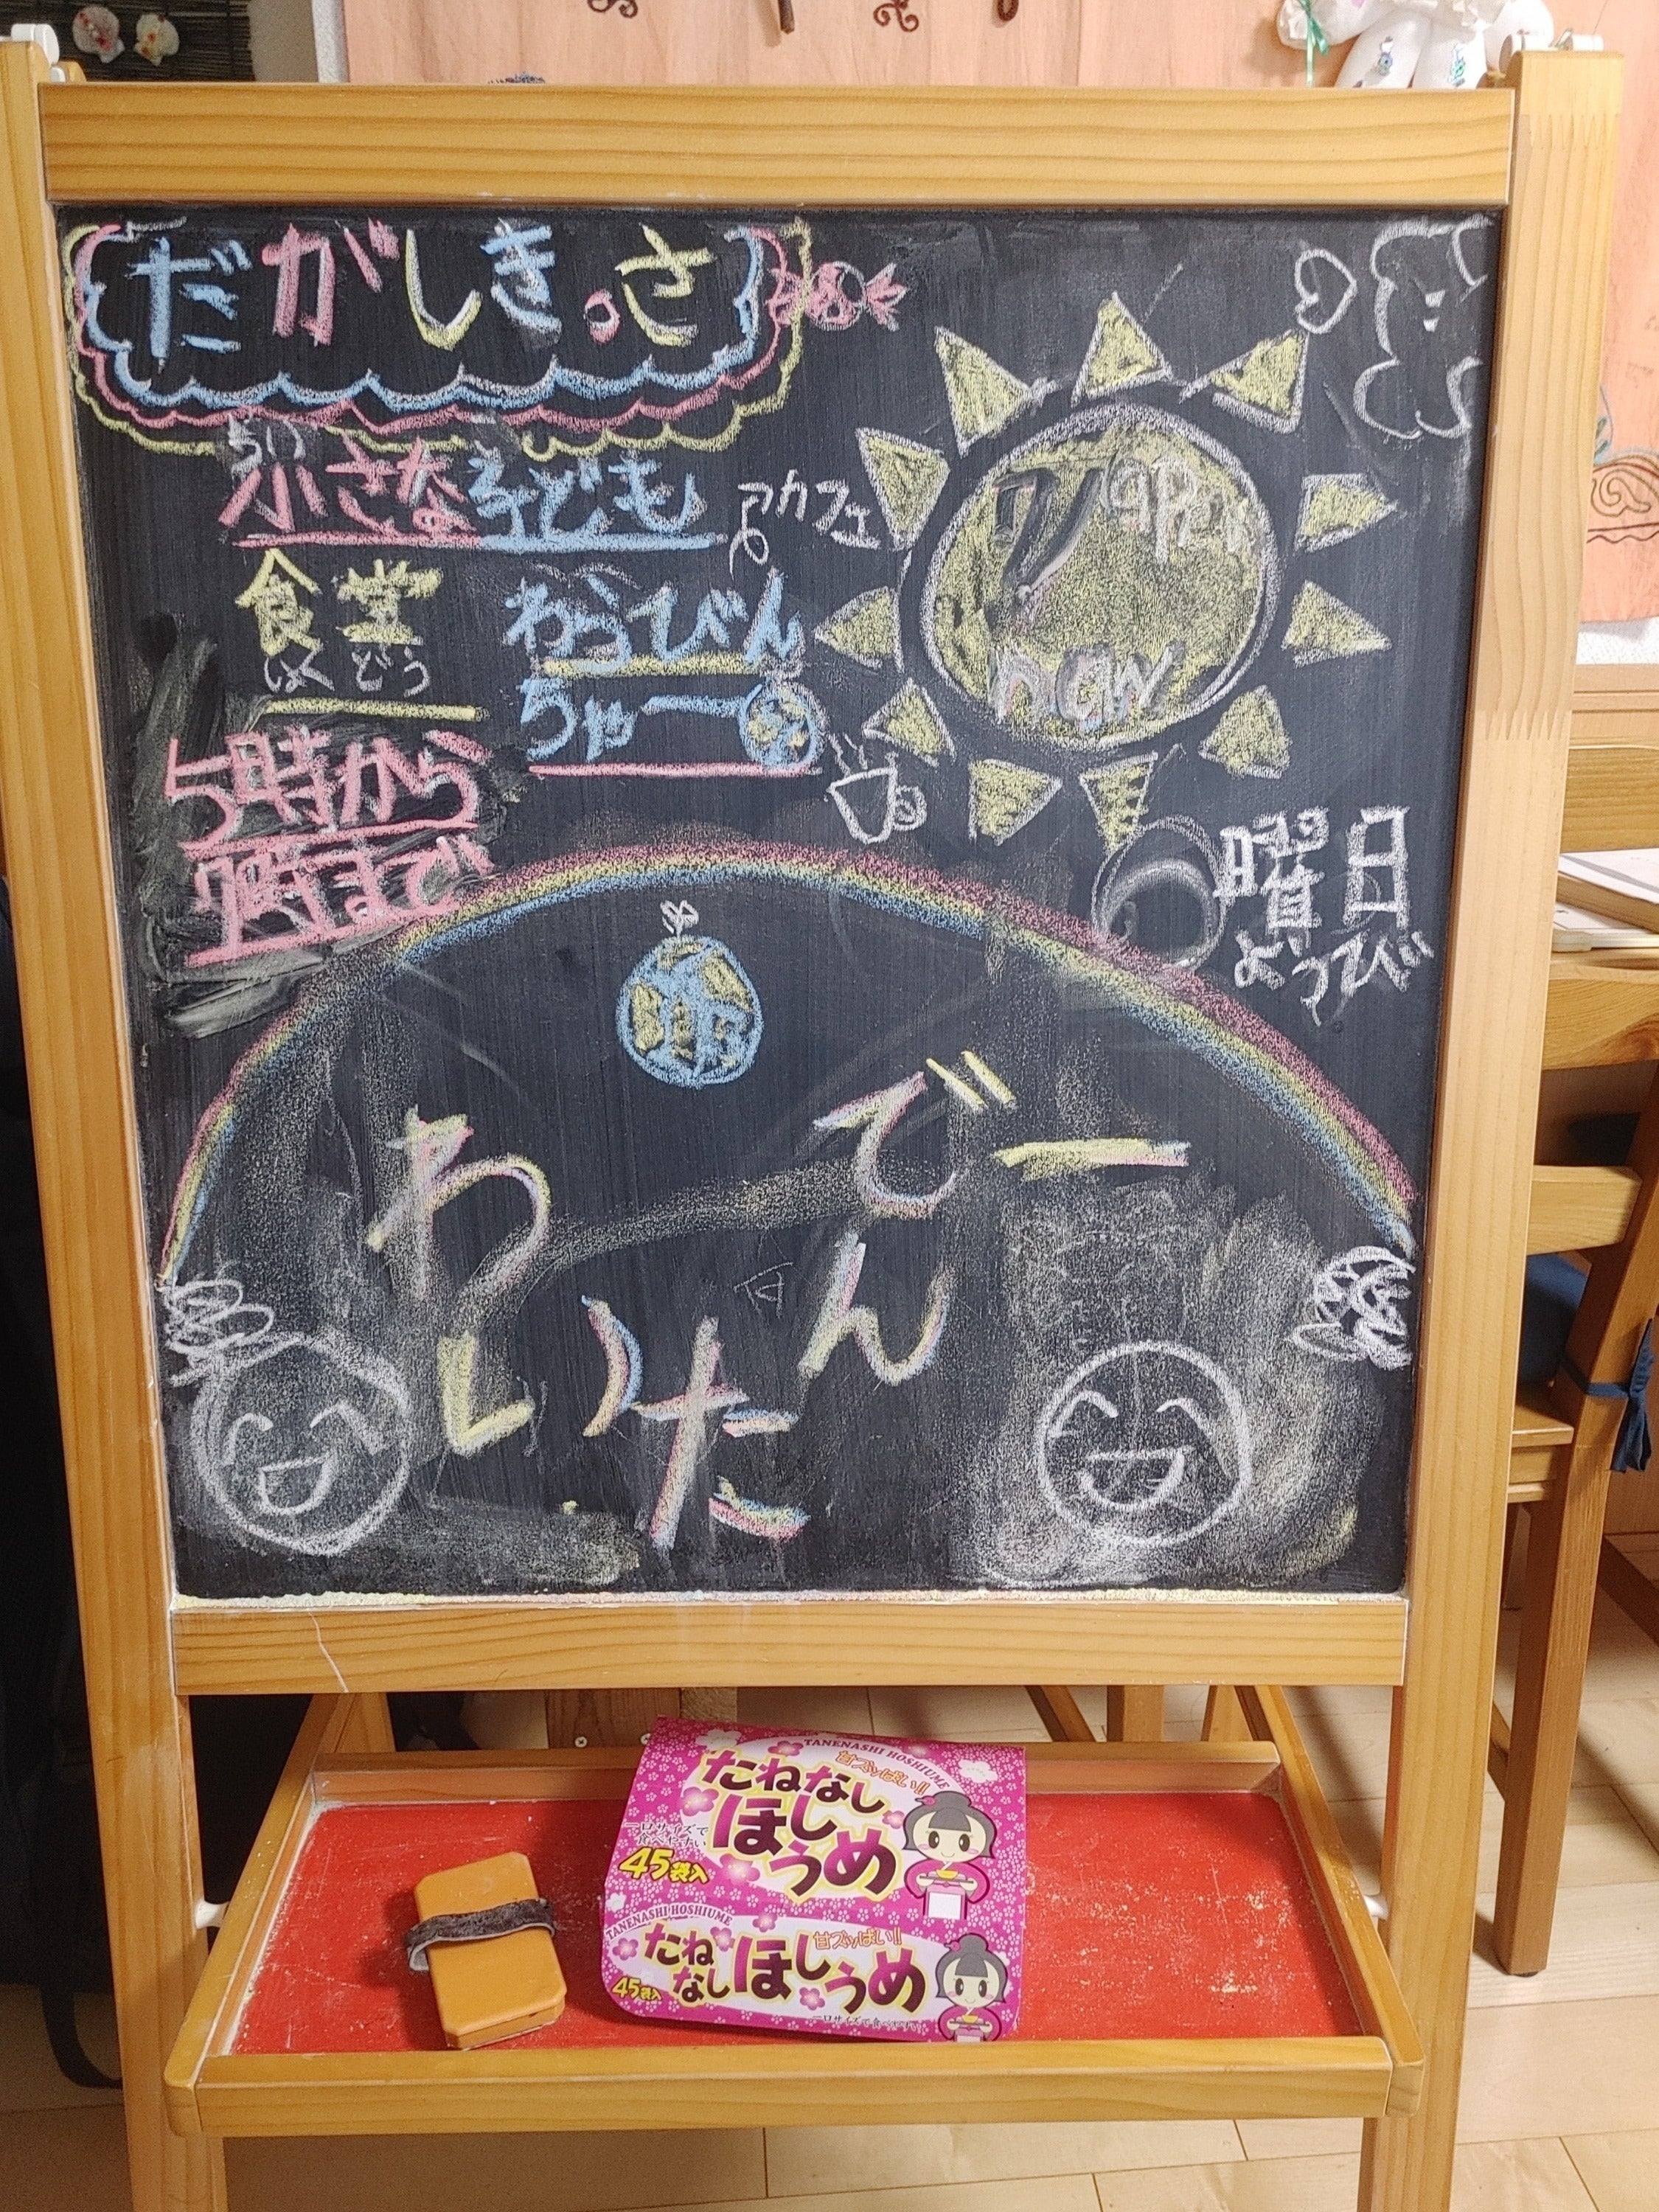 だがしきっさ
小さな子ども
ちい
カフェ
食堂
しょくどう
わらびん
ちゃー
5時から
7時まで
open
now
曜日
ようび
わ
い
た
でー
ん
TANENASHI HOSHIUME
甘ズッぱい!!
たねなし
ほしうめ
一口サイズで
食べやすい
45袋入
TANENASHI HOSHIUME
甘ズッぱい!!
たね
なし
ほしうめ
45袋入